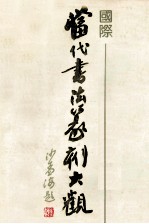 國際
當代書法篆刻大觀
沙孟海題